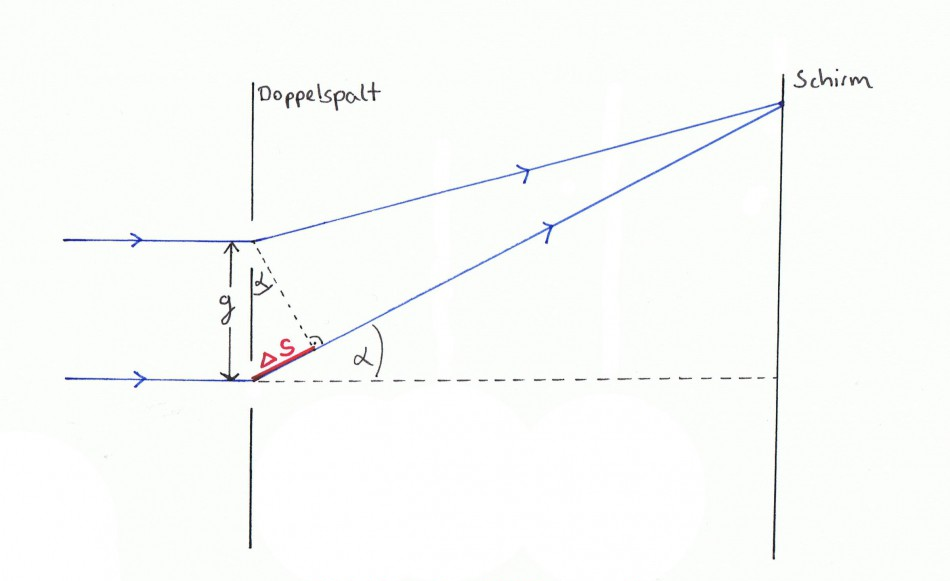 Doppelspalt
Schirm
g
α
ΔS
α